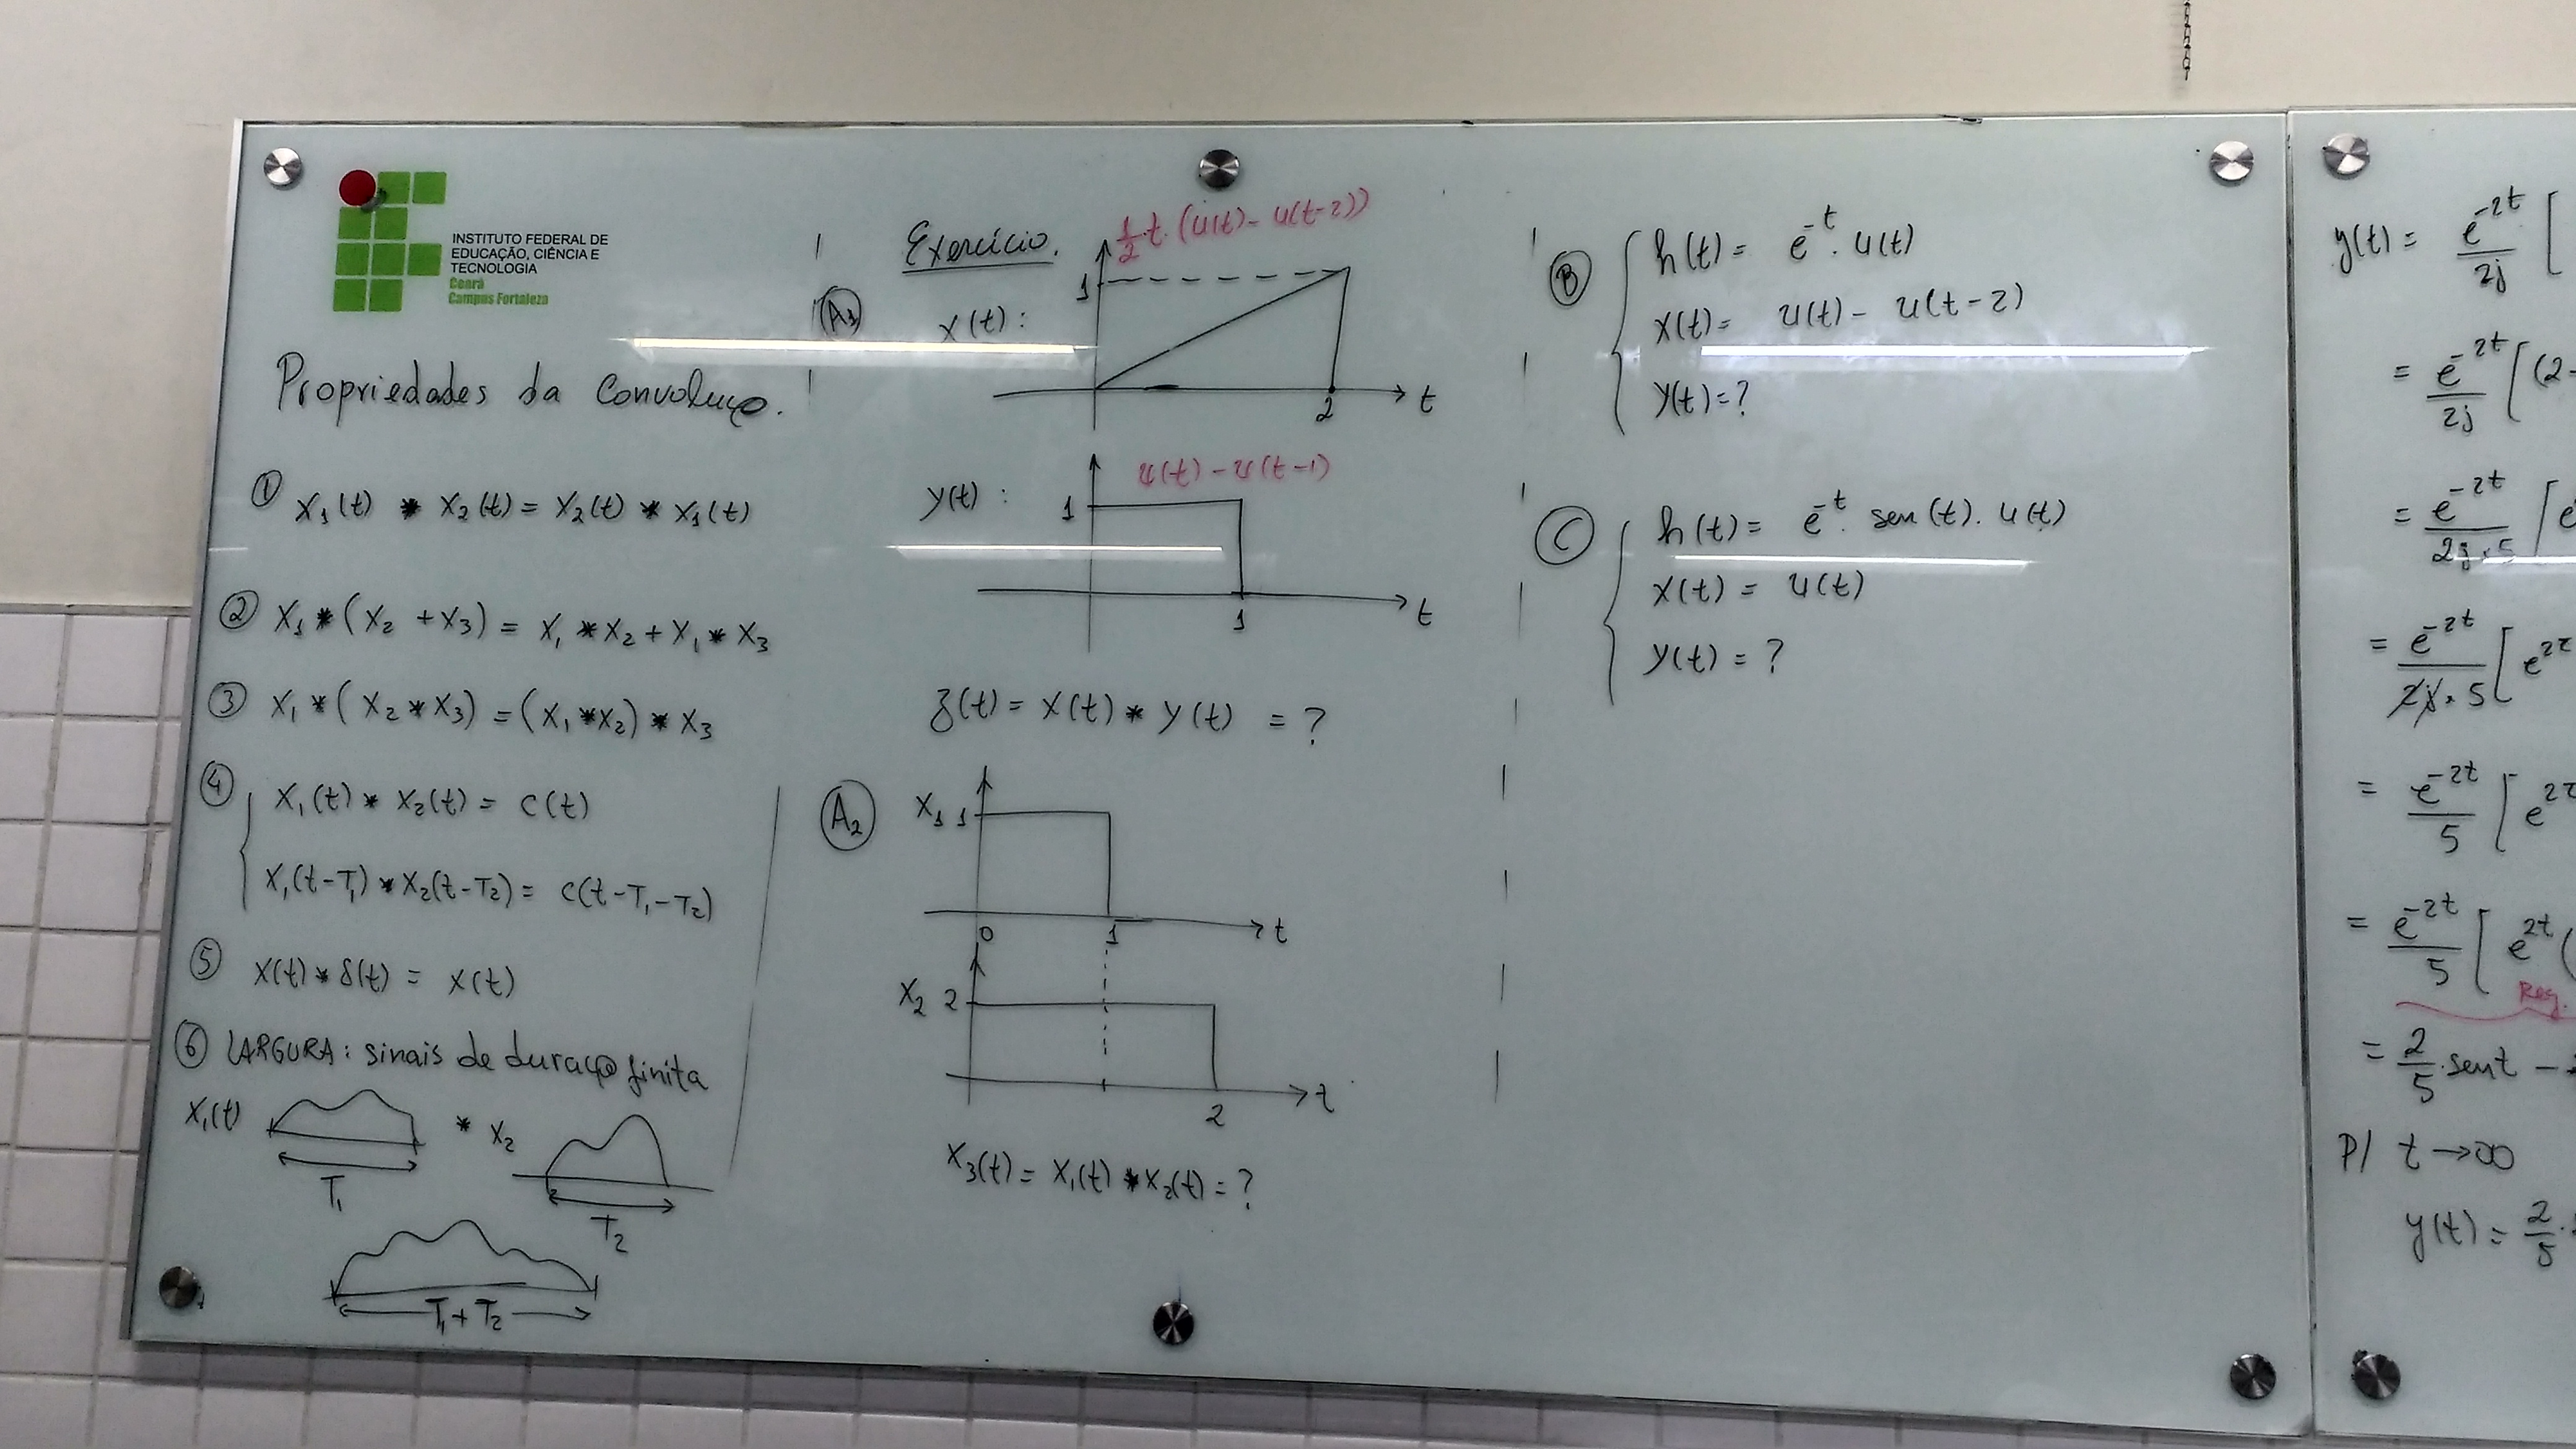 INSTITUTO FEDERAL DE
EDUCAÇÃO, CIÊNCIA E
TECNOLOGIA
Ceará
Campus Fortaleza
Propriedades da Convolução.
① x₁(t) * x₂(t) = x₂(t) * x₁(t)
② x₁ * (x₂ + x₃) = x₁ * x₂ + x₁ * x₃
③ x₁ * (x₂ * x₃) = (x₁ * x₂) * x₃
④ x₁(t) * x₂(t) = c(t)
x₁(t-T₁) * x₂(t-T₂) = c(t-T₁-T₂)
⑤ x(t) * δ(t) = x(t)
⑥ LARGURA: sinais de duração finita
x₁(t) * x₂
T₁
T₂
T₁+T₂
Exercício.
A₁
x(t):
½ t. (u(t) - u(t-2))
1
2
t
y(t):
u(t) - u(t-1)
1
1
t
z(t) = x(t) * y(t) = ?
A₂
x₁ 1
0 1 t
x₂ 2
2 t
x₃(t) = x₁(t) * x₂(t) = ?
B
h(t) = e⁻ᵗ . u(t)
x(t) = u(t) - u(t-2)
y(t) = ?
C
h(t) = e⁻ᵗ . sen(t). u(t)
x(t) = u(t)
y(t) = ?
y(t) = e⁻²ᵗ/2j [
= e⁻²ᵗ/2j [ (2-
= e⁻²ᵗ/2j.5 [ e
= e⁻²ᵗ/2j.5 [ e²ᵗ
= e⁻²ᵗ/5 [ e²ᵗ
= e⁻²ᵗ/5 [ e²ᵗ (
Reg.
= 2/5 . sent -
P/ t → ∞
y(t) = 2/5 .